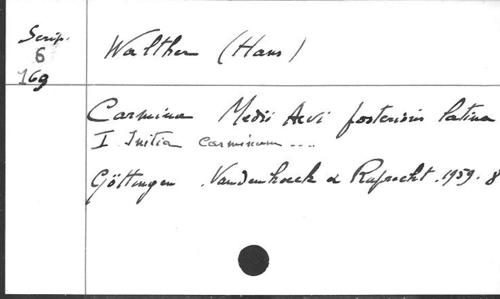 Scrip.
6
169
Walther (Hans)
Carmina Medii Aevi posterioris latina
I Initia carminum ....
Göttingen. Vandenhoeck & Ruprecht. 1959. 8